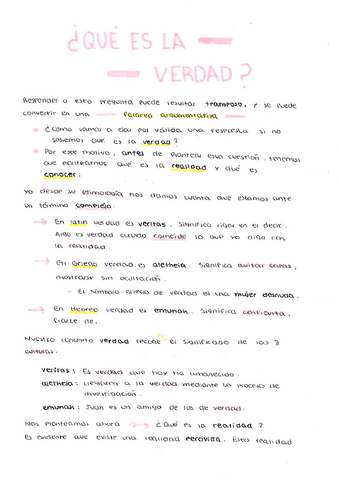 ¿QUÉ ES LA
VERDAD?
Responder a esta pregunta puede resultar tramposo, y se puede
convertir en una falacia argumentativa
¿Cómo vamos a dar por válida una respuesta si no
sabemos qué es la verdad?
Por este motivo, antes de plantear esta cuestión, tenemos
que plantearnos qué es la realidad y qué es
conocer.
Ya desde su etimología nos damos cuenta que estamos ante
un término complejo.
En latín verdad es veritas. Significa rigor en el decir.
Algo es verdad cuando coincide lo que yo digo con
la realidad.
En Griego verdad es aletheia. Significa quitar,
mostrarse sin ocultación.
El símbolo griego de verdad es una mujer desnuda.
En Hebreo verdad es emunah. Significa confianza,
fiarte de.
Nuestro concepto verdad recoge el significado de las 3
culturas.
veritas: Es verdad que hoy ha amanecido.
aletheia: Llegaron a la verdad mediante un proceso de
investigación.
emunah: Juan es un amigo de los de verdad.
Nos planteamos ahora ¿Qué es la realidad?
Es evidente que existe una realidad percivida. Esta realidad